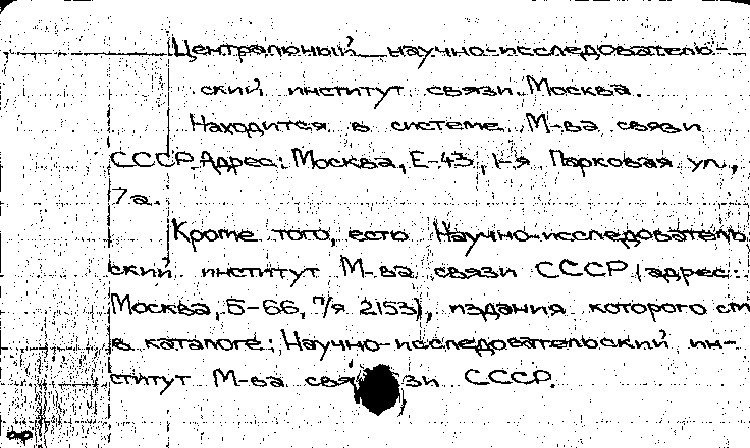 Центральный научно-исследователь-
ский институт связи. Москва.
Находится в системе М-ва связи
СССР. Адрес: Москва, Е-43, 1-я Парковая ул.,
7а.
Кроме того, есть Научно-исследователь
ский институт М-ва связи СССР (адрес:
Москва, Б-66, п/я 2153), издания которого см
в каталоге: Научно-исследовательский ин-
ститут М-ва связи СССР.